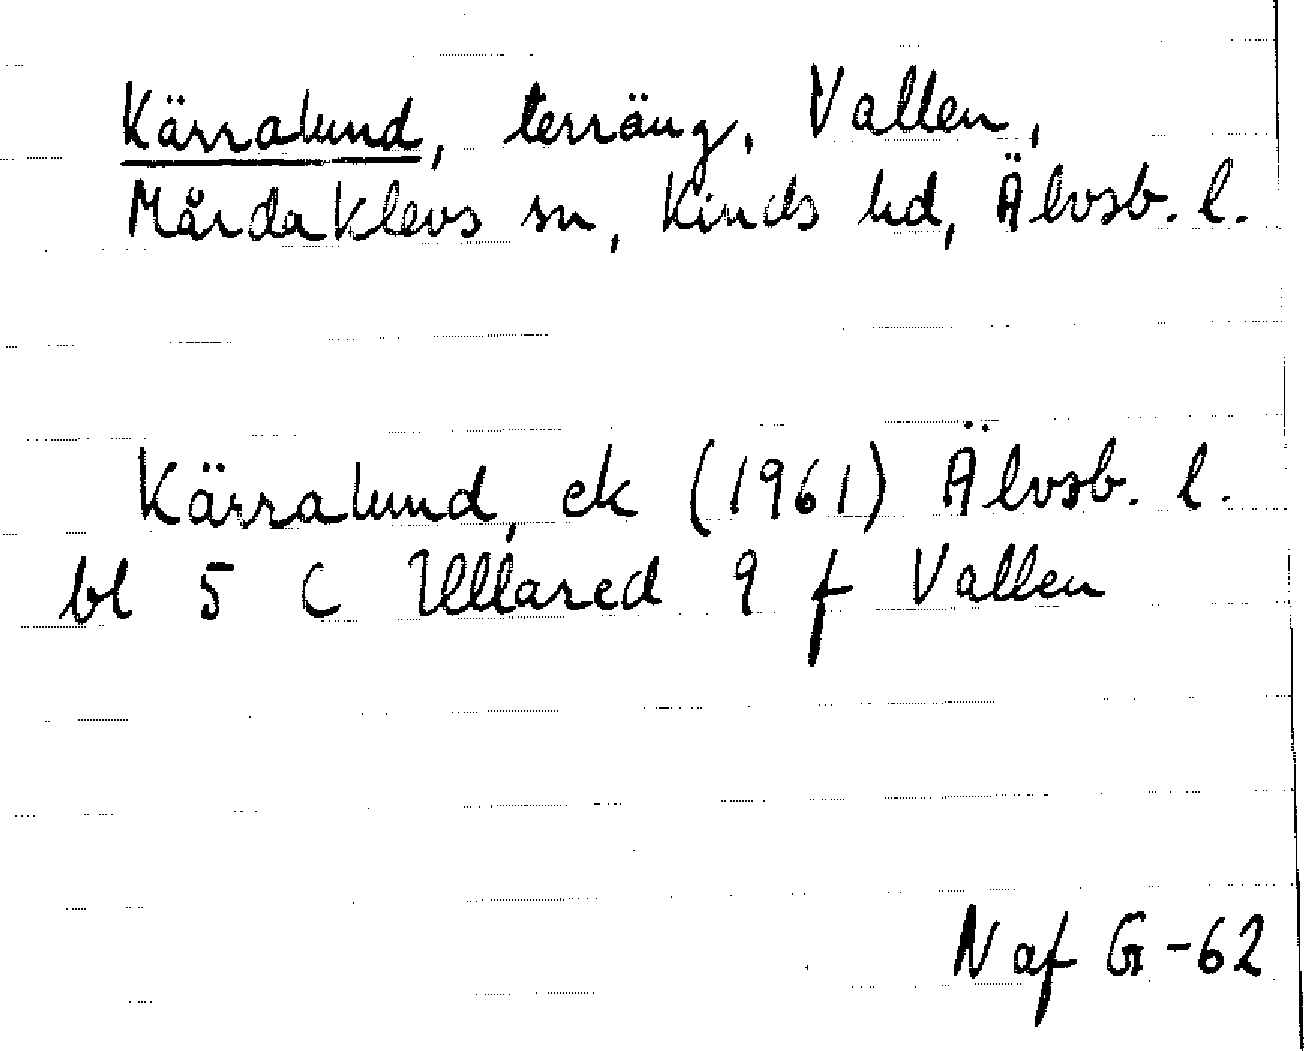 Kärralund, terräng, Vallen,
Mårdaklevs sn, Kinds hd, Älvsb. l.
Kärralund, ek (1961) Älvsb. l.
bl 5 C Ullared 9 f Vallen
Naf G-62